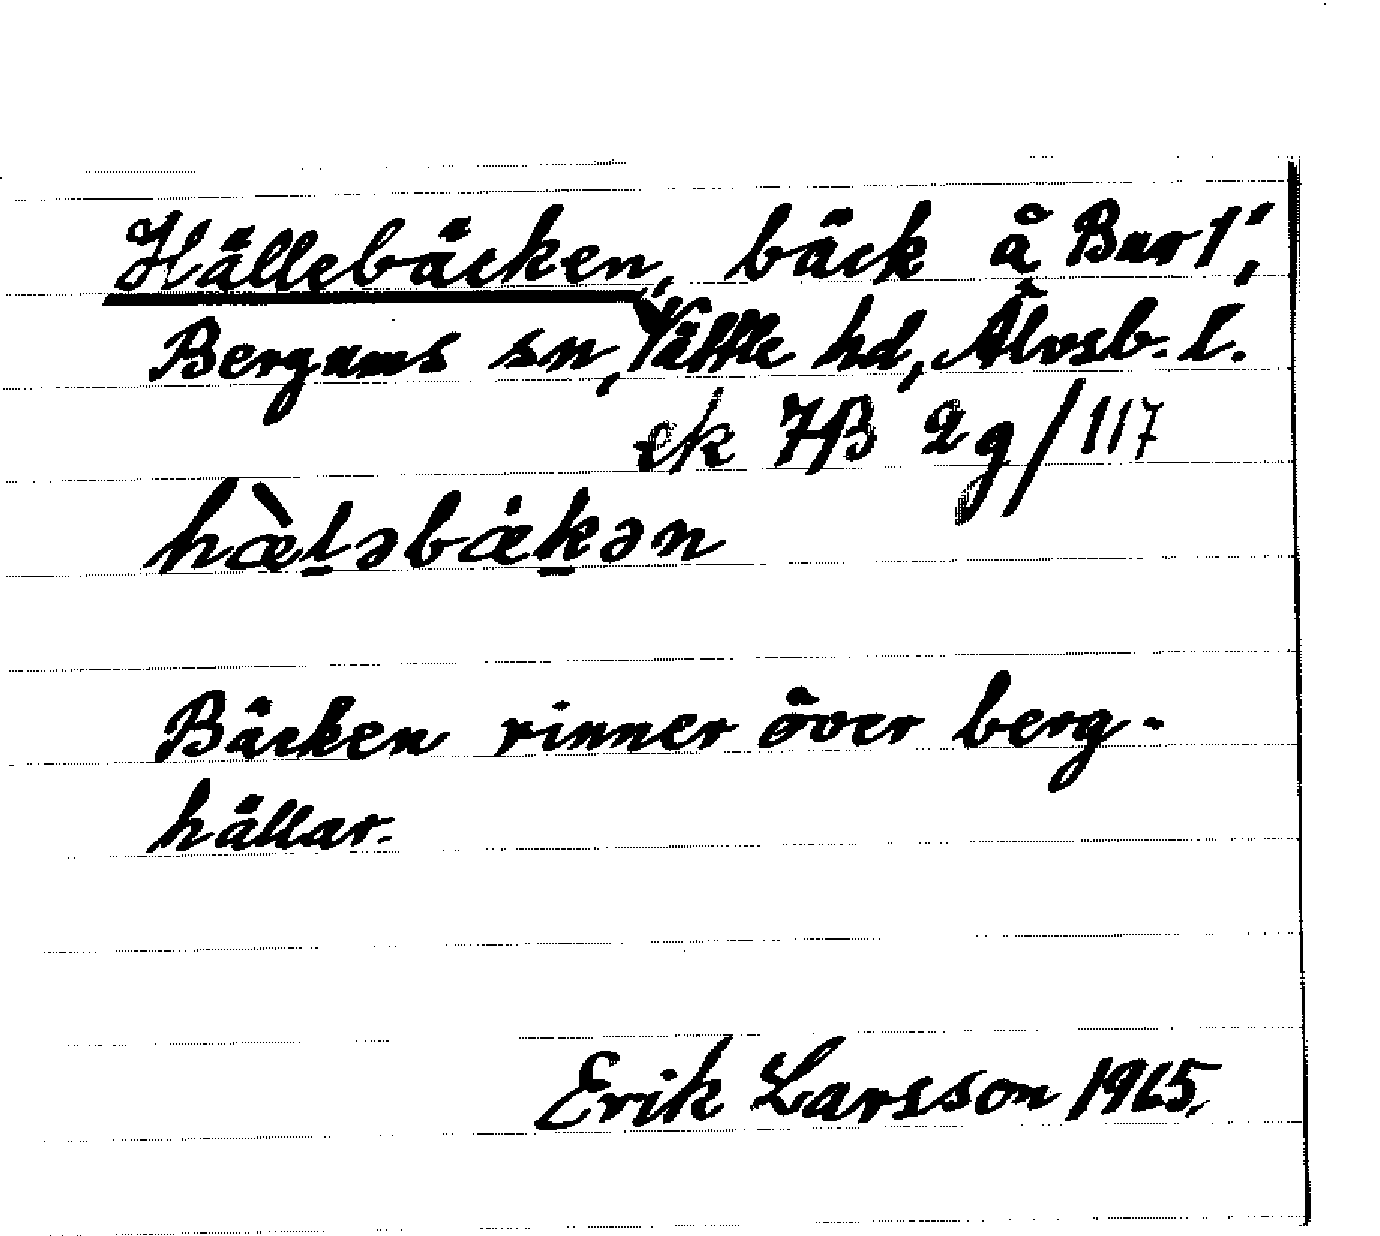 Hällebäcken, bäck å Bur 1:1;
Bergums sn, Vättle hd, Älvsb. l.
ek 7B 2g/117
hæ̀l̠əbæ̇k̠ən
Bäcken rinner över berg-
hällar.
Erik Larsson 1965.